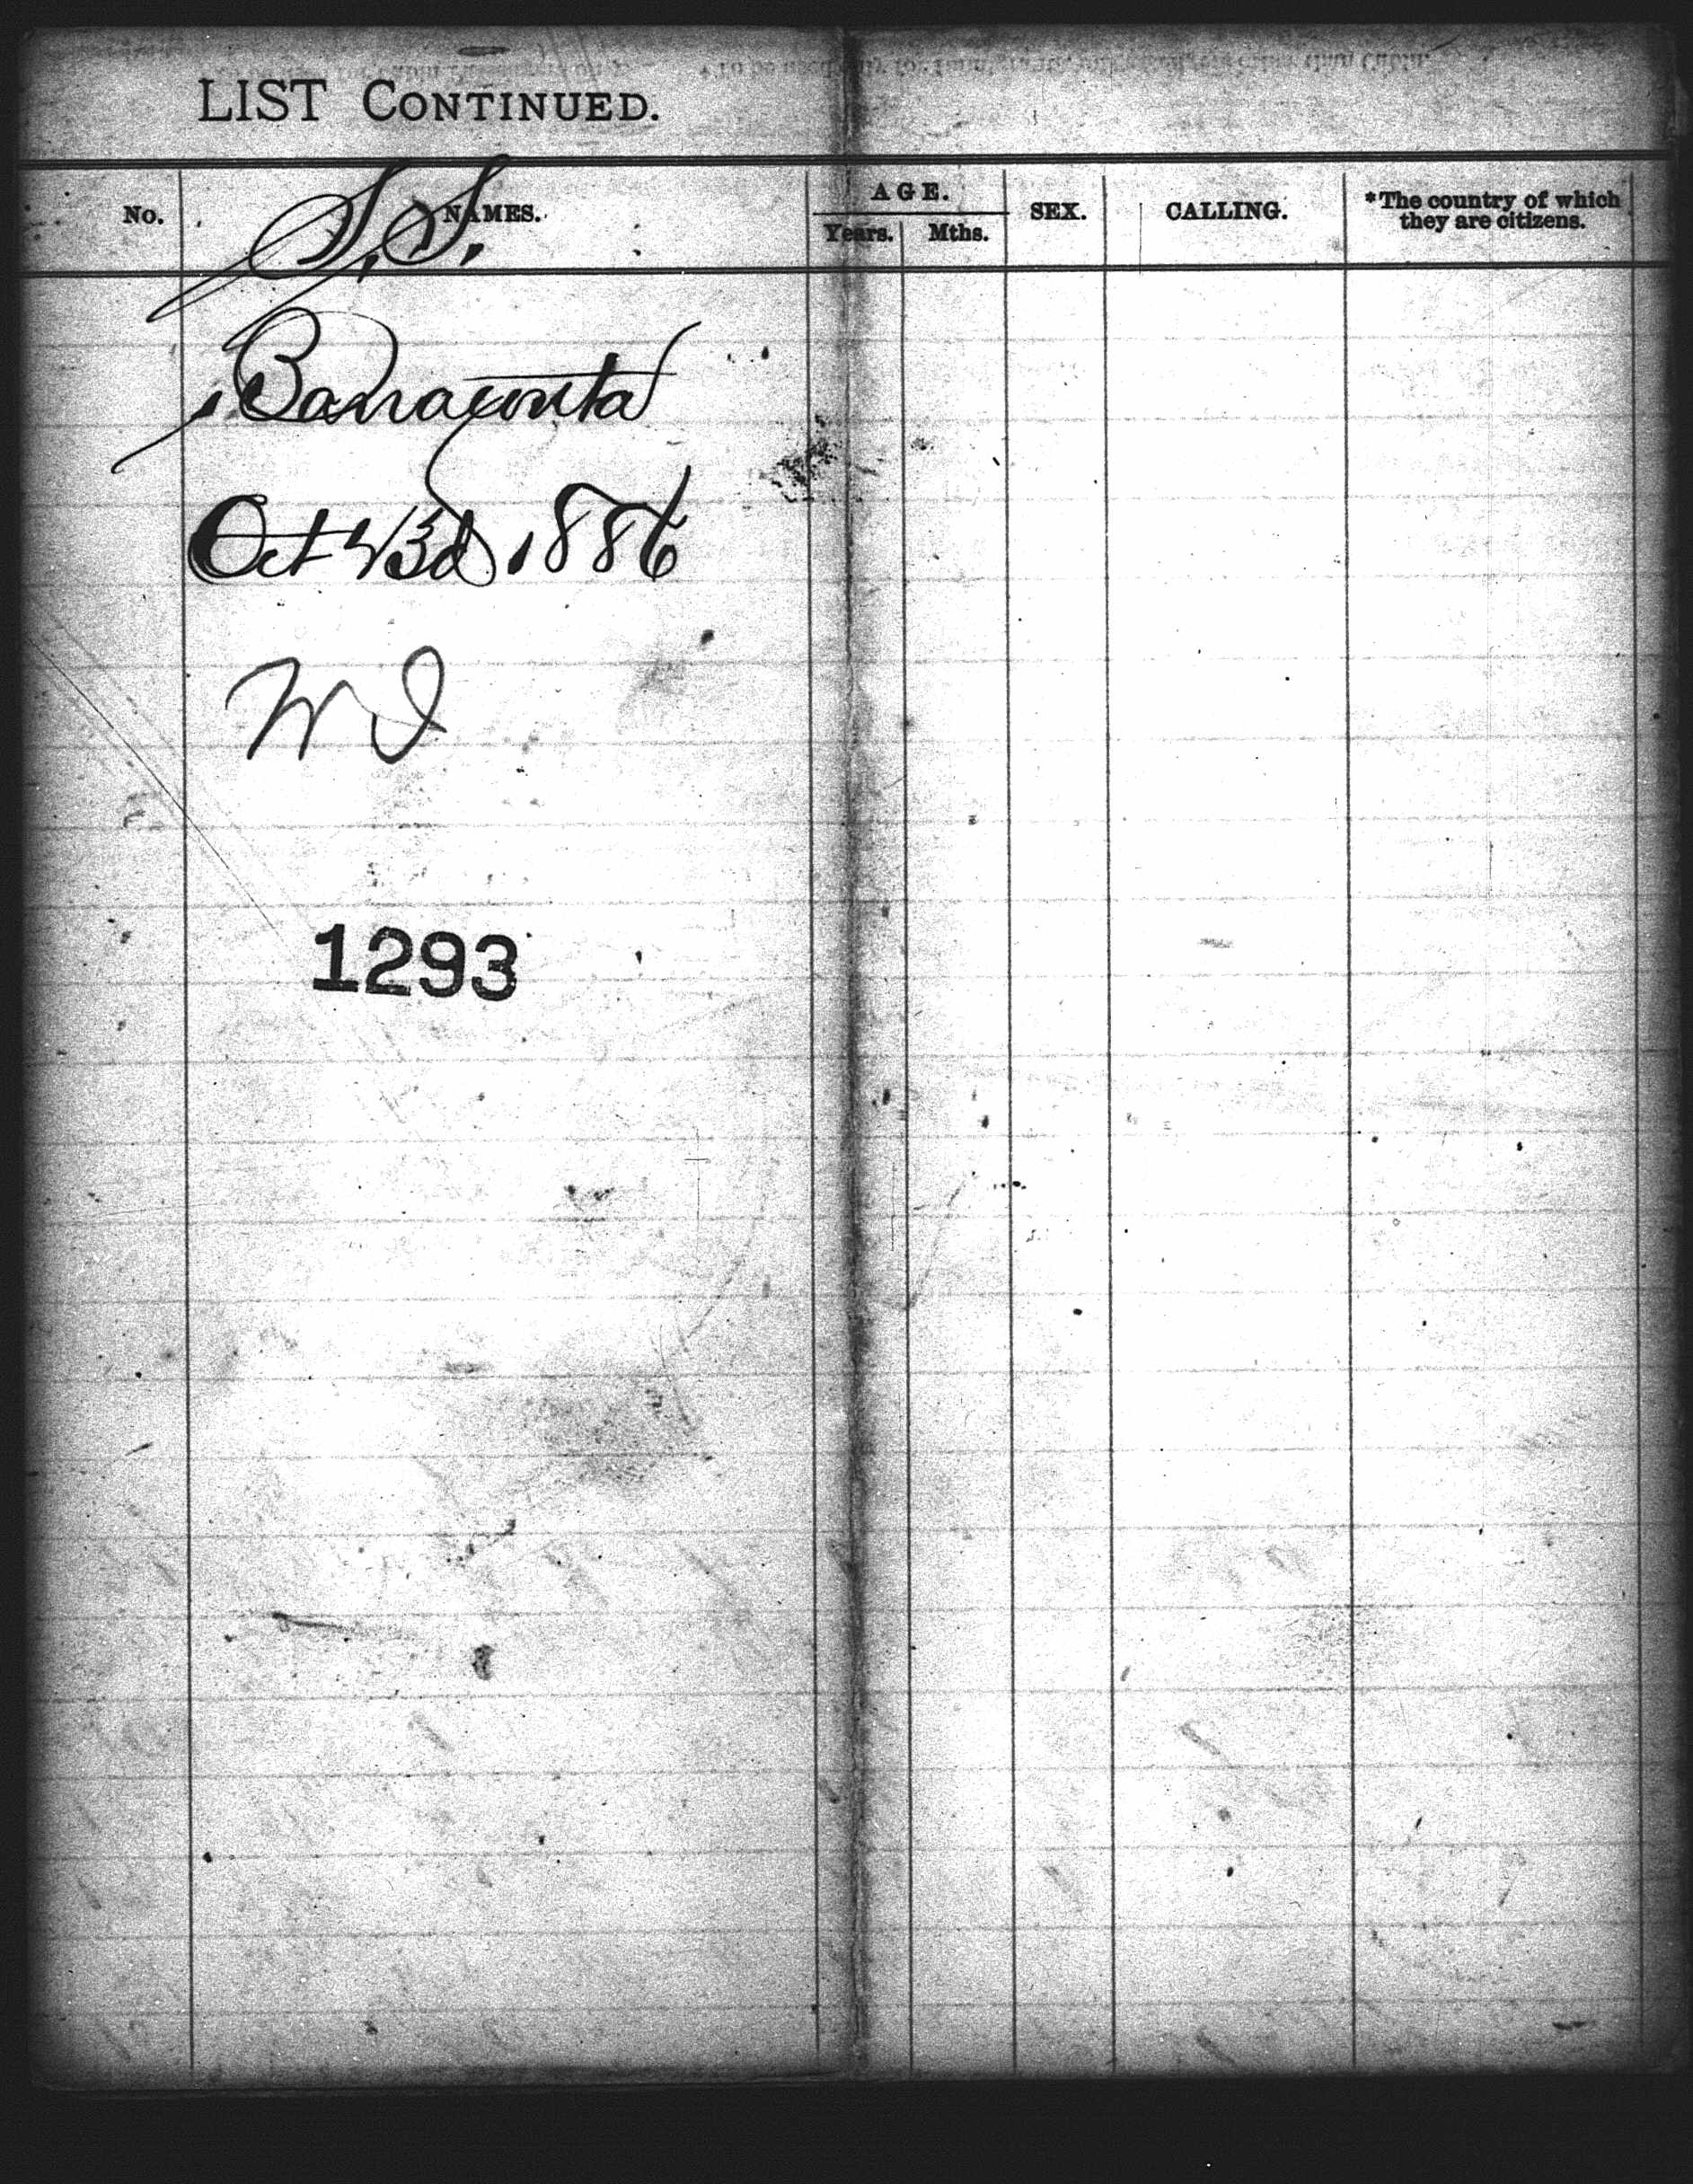 LIST CONTINUED.
No. NAMES. AGE. Years. Mths. SEX. CALLING. *The country of which they are citizens.
S.S.
Barracouta
Oct 23d 1886
W I
1293